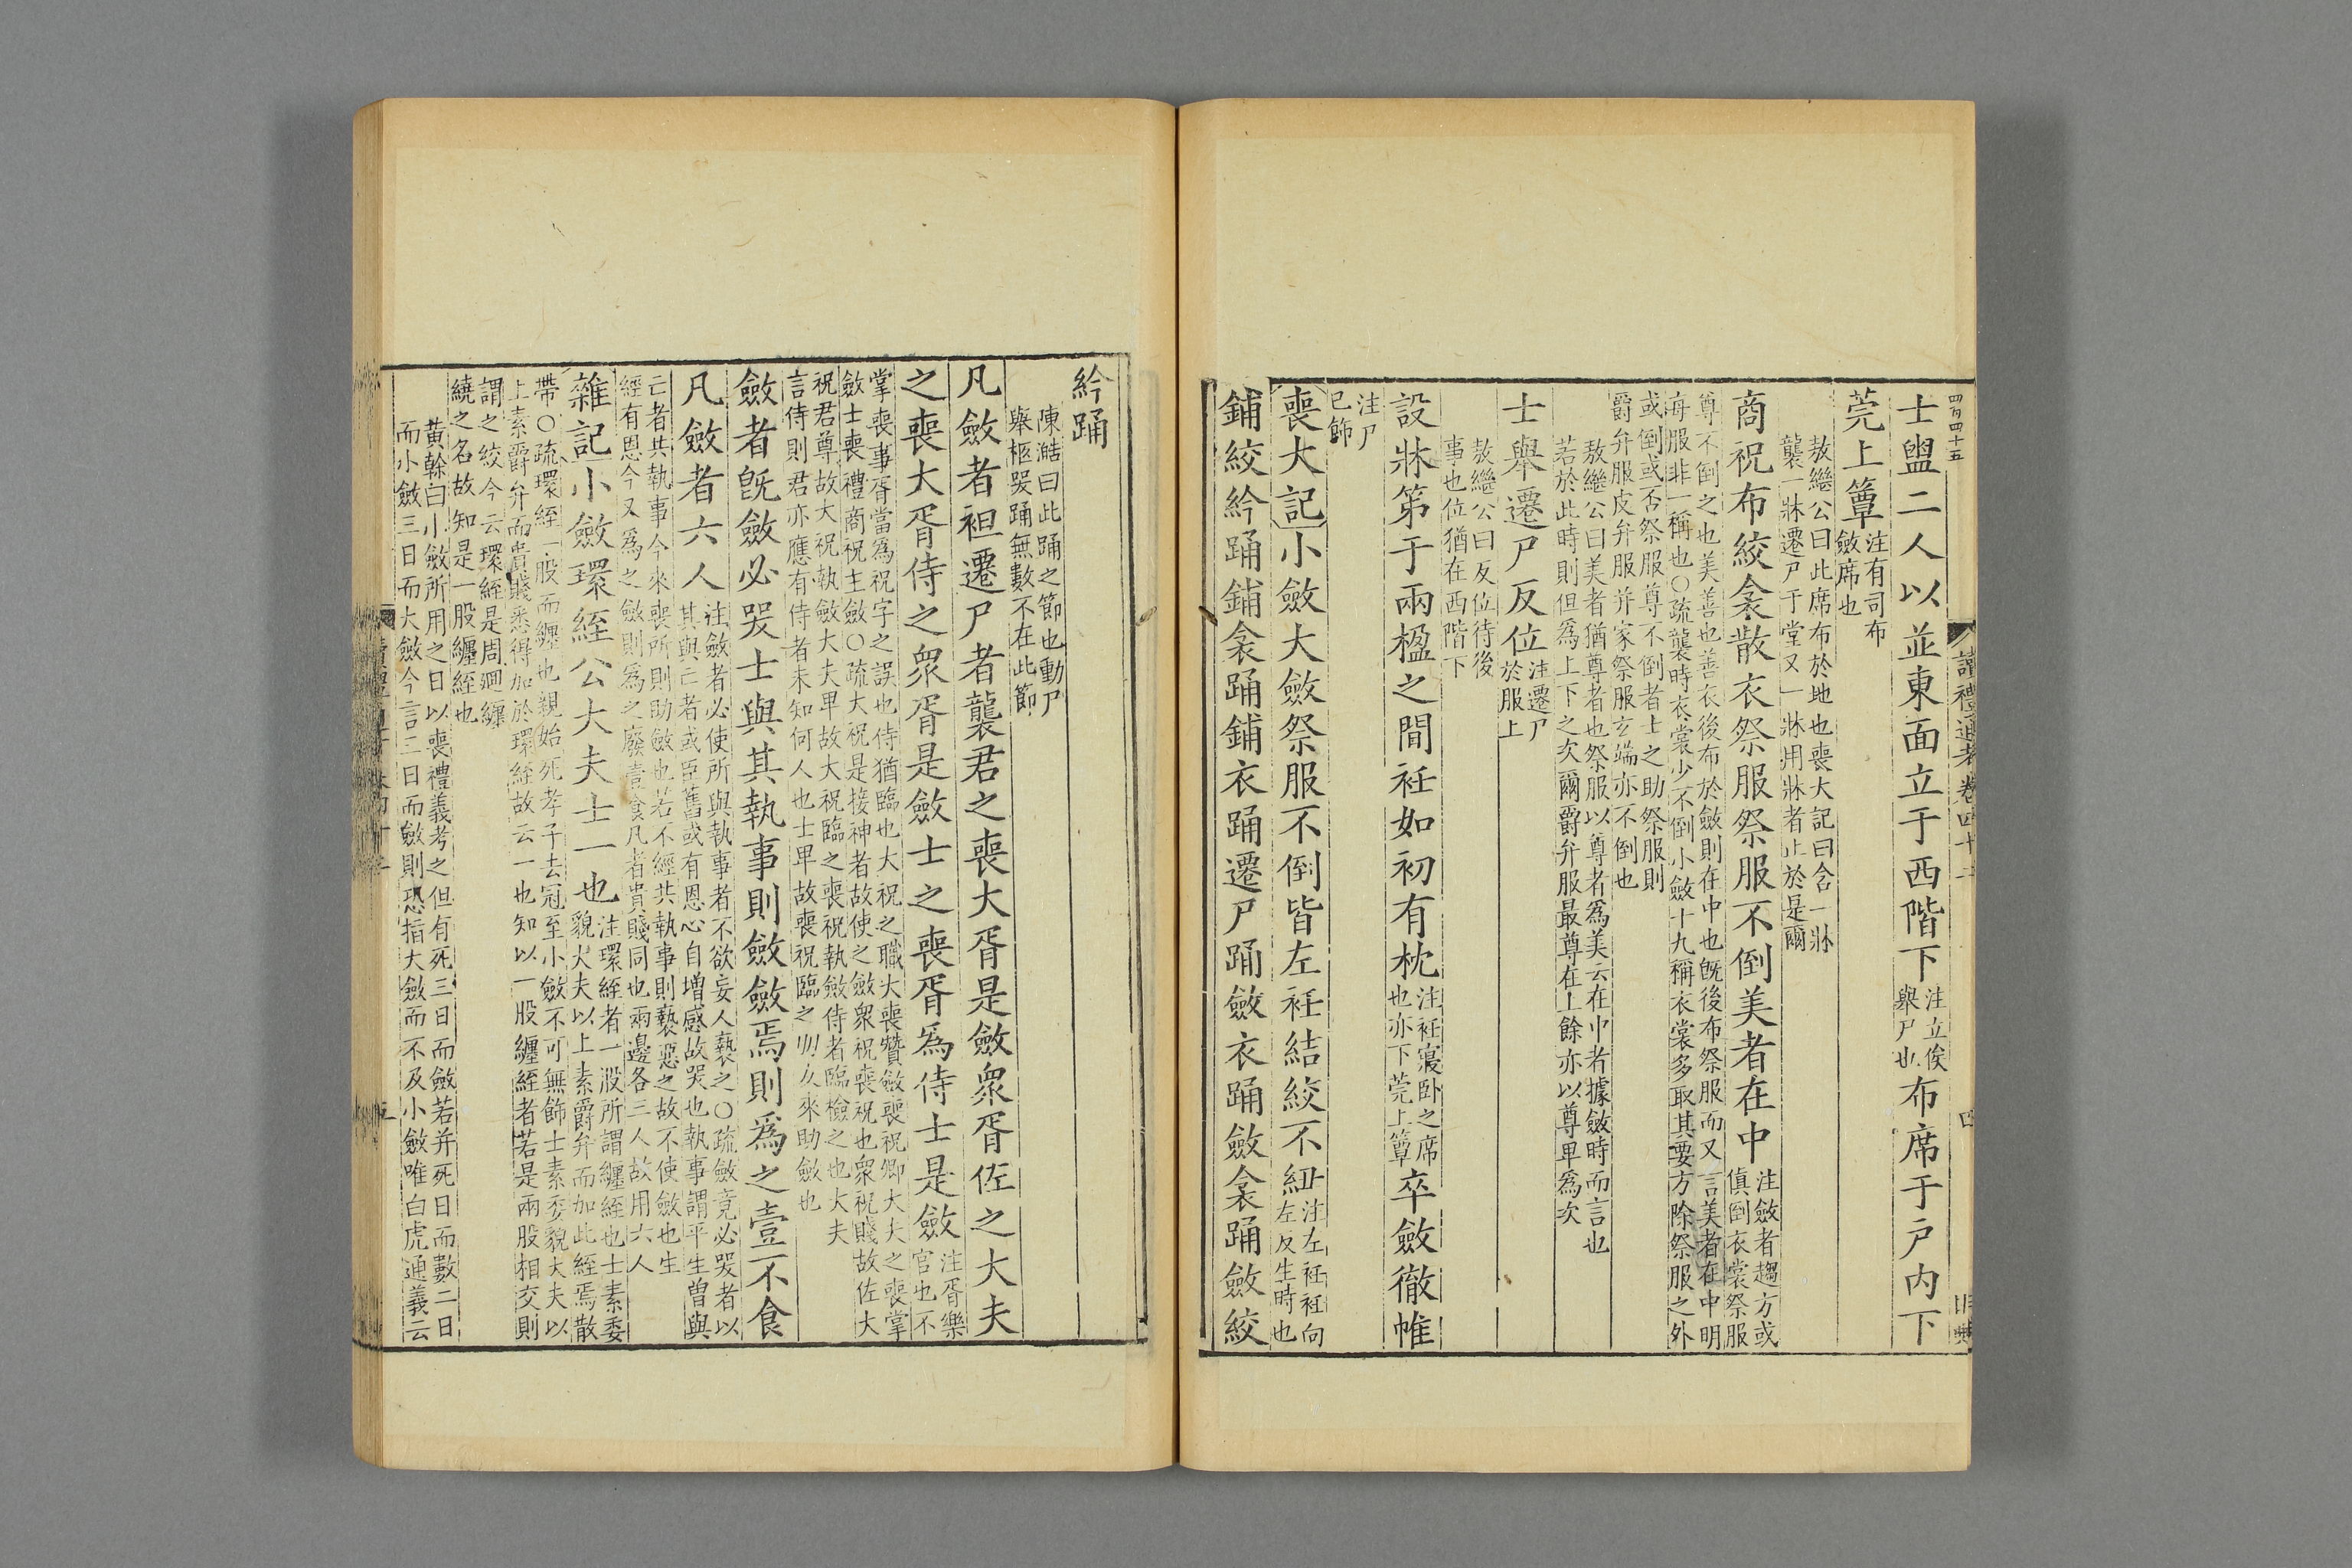 四百四十五
讀禮通考卷四十二
四
士盥二人以並東面立于西階下注立俟舉尸也布席于户内下
莞上簟注有司布斂席也
敖繼公曰此席布於地也喪大記曰含一牀
襲一牀遷尸于堂又一牀用牀者止於是爾
商祝布絞衾散衣祭服祭服不倒美者在中注斂者趨方或傎倒衣裳祭服
尊不倒之也美善也善衣後布於斂則在中也旣後布祭服而又言美者在中明
每服非一稱也○疏襲時衣裳少不倒小斂十九稱衣裳多取其要方除祭服之外
或倒或否祭服尊不倒者士之助祭服則
爵弁服皮弁服并家祭服玄端亦不倒也
敖繼公曰美者猶尊者也祭服以尊者爲美云在中者據斂時而言也
若於此時則但爲上下之次爾爵弁服最尊在上餘亦以尊卑爲次
士舉遷尸反位注遷尸於服上
敖繼公曰反位待後
事也位猶在西階下
設牀笫于兩楹之間衽如初有枕注衽寢卧之席也亦下莞上簟卒斂徹帷
注尸已飾
喪大記小斂大斂祭服不倒皆左衽結絞不紐注左衽衽向左反生時也
鋪絞紟踊鋪衾踊鋪衣踊遷尸踊斂衣踊斂衾踊斂絞
紟踊
陳澔曰此踊之節也動尸
舉柩哭踊無數不在此節
凡斂者袒遷尸者襲君之喪大胥是斂衆胥佐之大夫
之喪大胥侍之衆胥是斂士之喪胥爲侍士是斂注胥樂官也不
掌喪事胥當爲祝字之誤也侍猶臨也大祝之職大喪贊斂喪祝卿大夫之喪掌
斂士喪禮商祝主斂○疏大祝是接神者故使之斂衆祝喪祝也衆祝賤故佐大
祝君尊故大祝執斂大夫卑故大祝臨之喪祝執斂侍者臨檢之也大夫
言侍則君亦應有侍者未知何人也士卑故喪祝臨之朋友來助斂也
斂者旣斂必哭士與其執事則斂斂焉則爲之壹不食
凡斂者六人注斂者必使所與執事者不欲妄人褻之○疏斂竟必哭者以其與亡者或臣舊或有恩心自增感故哭也執事謂平生曽與
亡者共執事今來喪所則助斂也若不經共執事則褻惡之故不使斂也生
經有恩今又爲之斂則爲之廢壹食凡者貴賤同也兩邊各三人故用六人
雜記小斂環絰公大夫士一也注環絰者一股所謂纏絰也士素委貌大夫以上素爵弁而加此絰焉散
帶○疏環絰一股而纏也親始死孝子去冠至小斂不可無飾士素委貌大夫以
上素爵弁而貴賤悉得加於環絰故云一也知以一股纏絰者若是兩股相交則
謂之絞今云環絰是周迴纏
繞之名故知是一股纏絰也
黄榦曰小斂所用之日以喪禮義考之但有死三日而斂若并死日而數二日
而小斂三日而大斂今言三日而斂則恐指大斂而不及小斂唯白虎通義云